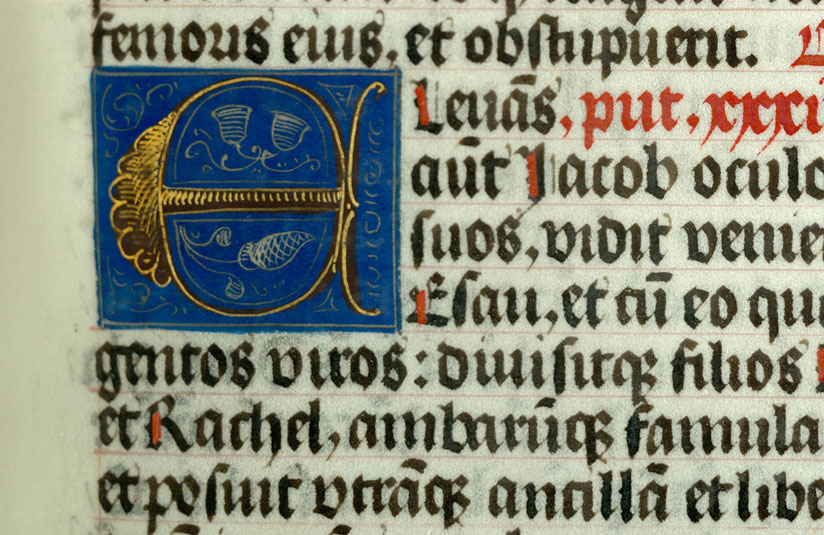 femoris eius, et obstupuerit.
ELeuãs, put. xxxii
aũt Jacob oculo
suos, vidit venie
Esau, et cũ eo qua
gentos viros: diuisitq̃ filios
et Rachel, ambarũq̃ famula
et posuit vtrãq̃ ancillã et libe